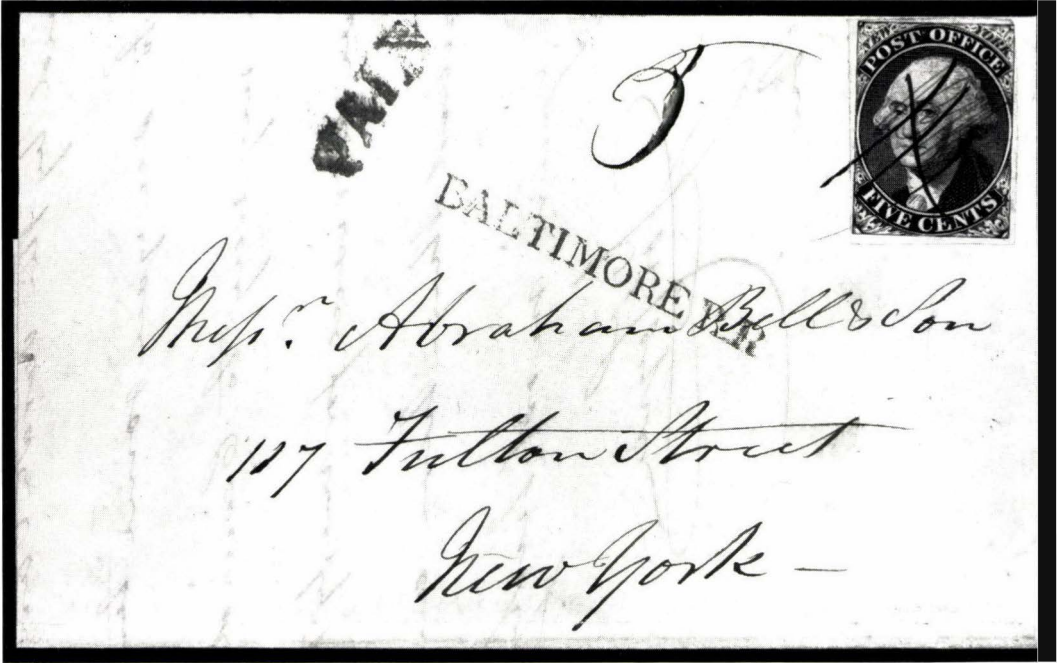 PAID
5
NEW YORK
POST OFFICE
FIVE CENTS
BALTIMORE R.R
Messr. Abraham Bell & Son
117 Fulton Street
New York –